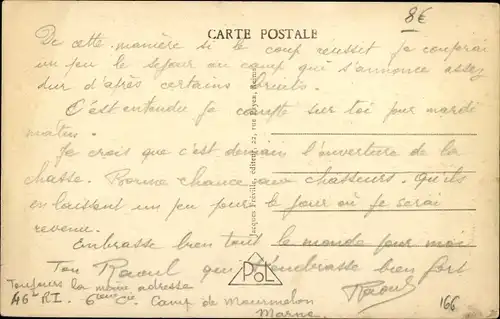 8€
CARTE POSTALE
De cette manière si le coup réussit je couperai
un peu le séjour au camp qui s'annonce assez
dur d'après certains bruits.
C'est entendu je compte sur toi pour mardi
matin.
Je crois que c'est demain l'ouverture de la
chasse. Bonne chance aux chasseurs. Qu'ils
en laissent un peu pour le jour où je serai
revenu.
Embrasse bien tout le monde pour moi
Ton Raoul qui t'embrasse bien fort
Raoul
Toujours la même adresse
46e R.I. 6eme Cie. Camp de Mourmelon
Marne
166
Jacques Fréville, éditeur, 22, rue
POL